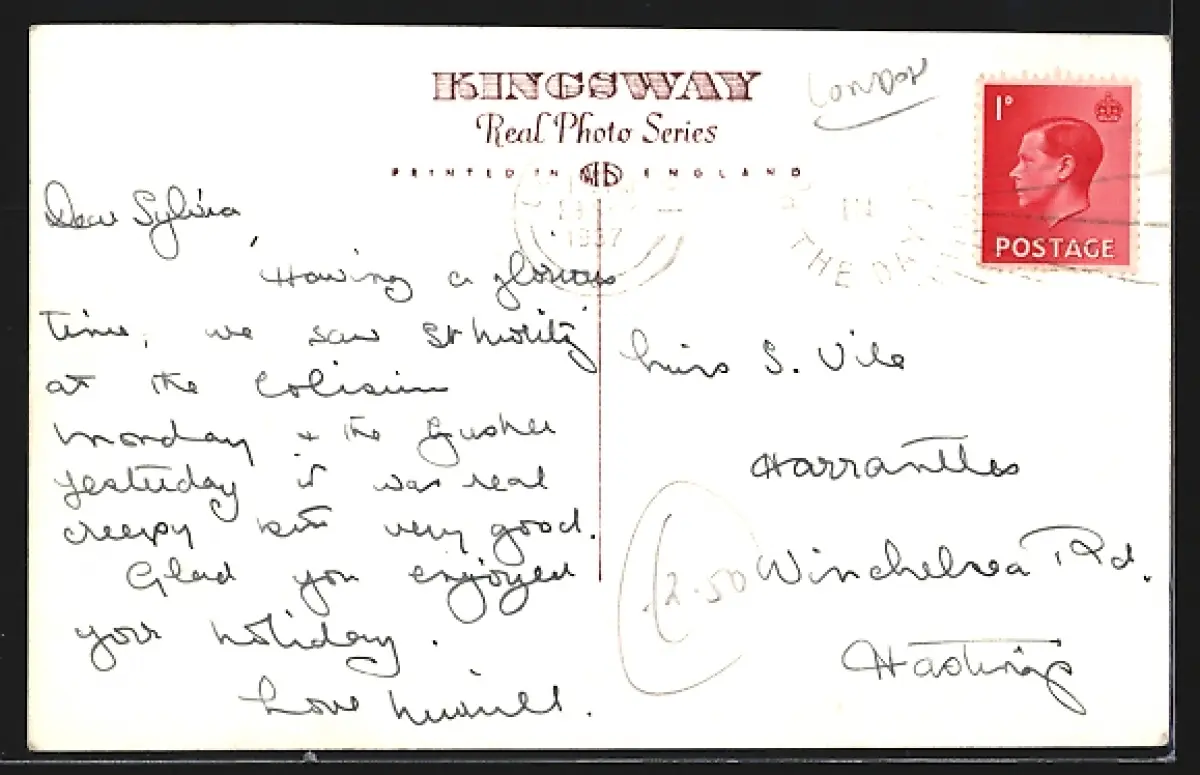 KINGSWAY
Real Photo Series
PRINTED IN ENGLAND
London
1D
POSTAGE
1937
THE
Dear Sylvia,
Having a glorious
time, we saw St Moritz
at the Coliseum
Monday + the Gusher
yesterday it was real
creepy but very good.
Glad you enjoyed
your holiday.
Love
Miss S. Vile
Harrantlles
Winchelsea Rd.
Hastings
2.50